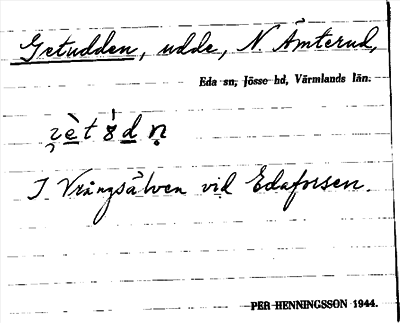 Getudden, udde, N. Ämterud,
Eda sn, Jösse hd, Värmlands län.
I Vrångsälven vid Edaforsen.
PER HENNINGSSON 1944.